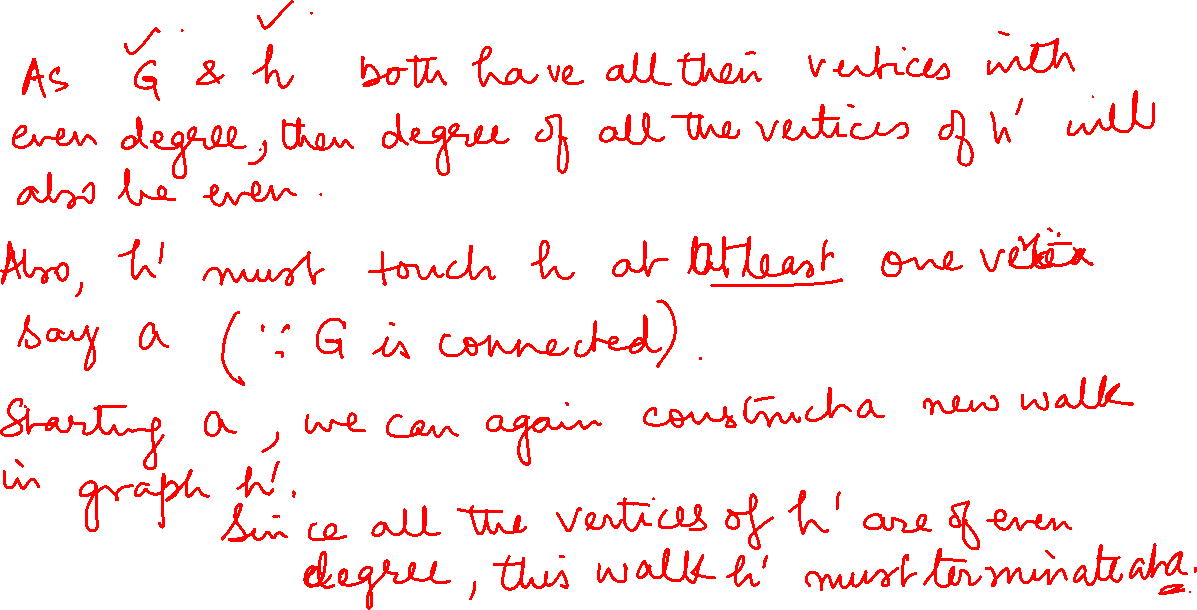 As G & h both have all their vertices with
even degree, then degree of all the vertices of h' will
also be even.
Also, h' must touch h at atleast one vertex
say a (∵ G is connected).
Starting a, we can again construct a new walk
in graph h'.
Since all the vertices of h' are of even
degree, this walk h' must terminate at a.